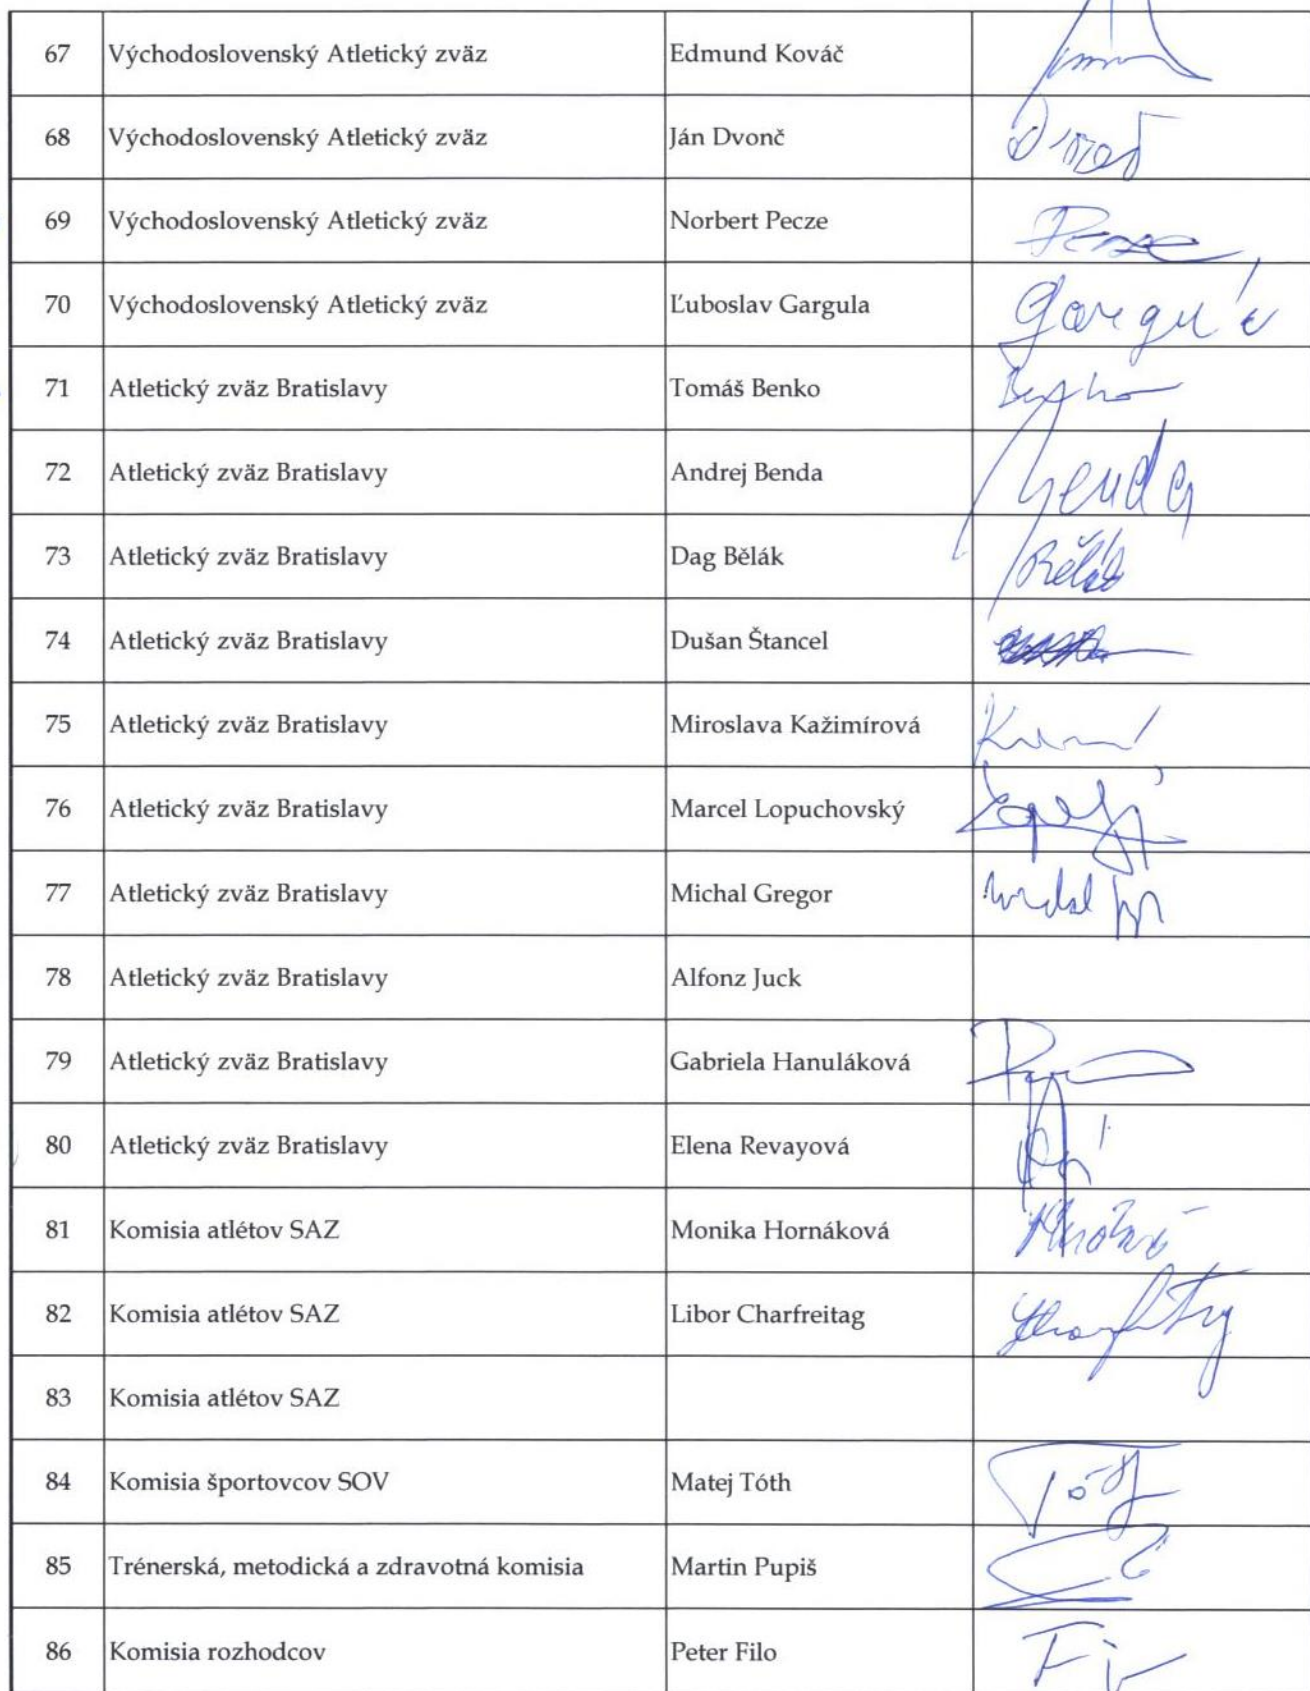 67 Východoslovenský Atletický zväz Edmund Kováč
68 Východoslovenský Atletický zväz Ján Dvonč
69 Východoslovenský Atletický zväz Norbert Pecze
70 Východoslovenský Atletický zväz Ľuboslav Gargula
71 Atletický zväz Bratislavy Tomáš Benko
72 Atletický zväz Bratislavy Andrej Benda Benda
73 Atletický zväz Bratislavy Dag Bělák Bělák
74 Atletický zväz Bratislavy Dušan Štancel
75 Atletický zväz Bratislavy Miroslava Kažimírová
76 Atletický zväz Bratislavy Marcel Lopuchovský
77 Atletický zväz Bratislavy Michal Gregor
78 Atletický zväz Bratislavy Alfonz Juck
79 Atletický zväz Bratislavy Gabriela Hanuláková
80 Atletický zväz Bratislavy Elena Revayová
81 Komisia atlétov SAZ Monika Hornáková
82 Komisia atlétov SAZ Libor Charfreitag
83 Komisia atlétov SAZ
84 Komisia športovcov SOV Matej Tóth Tóth
85 Trénerská, metodická a zdravotná komisia Martin Pupiš
86 Komisia rozhodcov Peter Filo